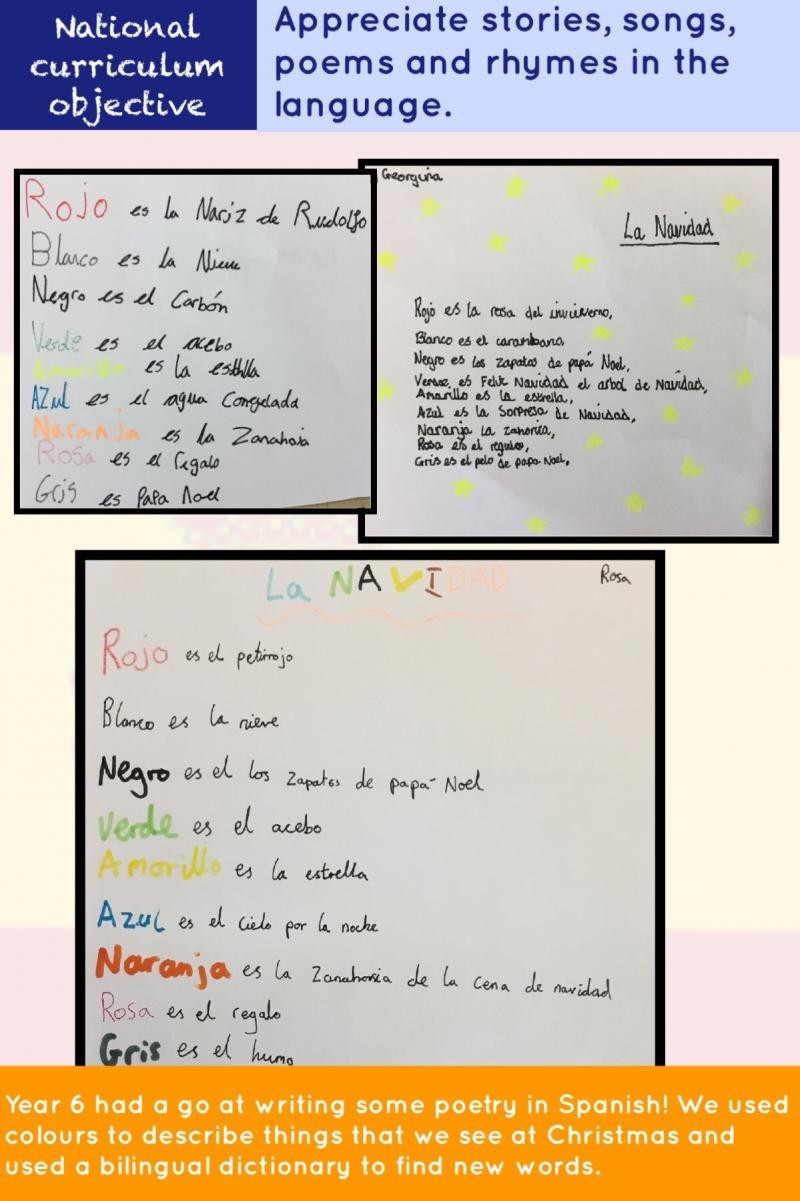 National
curriculum
objective
Appreciate stories, songs,
poems and rhymes in the
language.
Rojo es la Nariz de Rudolfo
Blanco es la Nieve
Negro es el Carbón
Verde es el acebo
Amarillo es la
AZul es el agua Congelada
Naranja es la Zanahoia
Rosa es el regalo
Gris es Papa Noel
Georgina
La Navidad
Rojo es la rosa del
Blanco es el carambano,
Negro es los zapatos de papá Noel,
es Feliz Navidad el arbol de Navidad,
Amarillo es la estrella,
Azul es la Sorpresa de Navidad,
Naranja la
Rosa es el
Gris es el pelo de papa-Noel,
La NAVIDAD
Rosa
Rojo es el petirrojo
Blanco es la nieve
Negro es el los zapatos de papa-Noel
Verde es el acebo
Amorillo es la estrella
AZuL es el cielo por la noche
Naranja es la Zanahoria de la cena de navidad
Rosa es el regalo
Gris es el humo
Year 6 had a go at writing some poetry in Spanish! We used
colours to describe things that we see at Christmas and
used a bilingual dictionary to find new words.